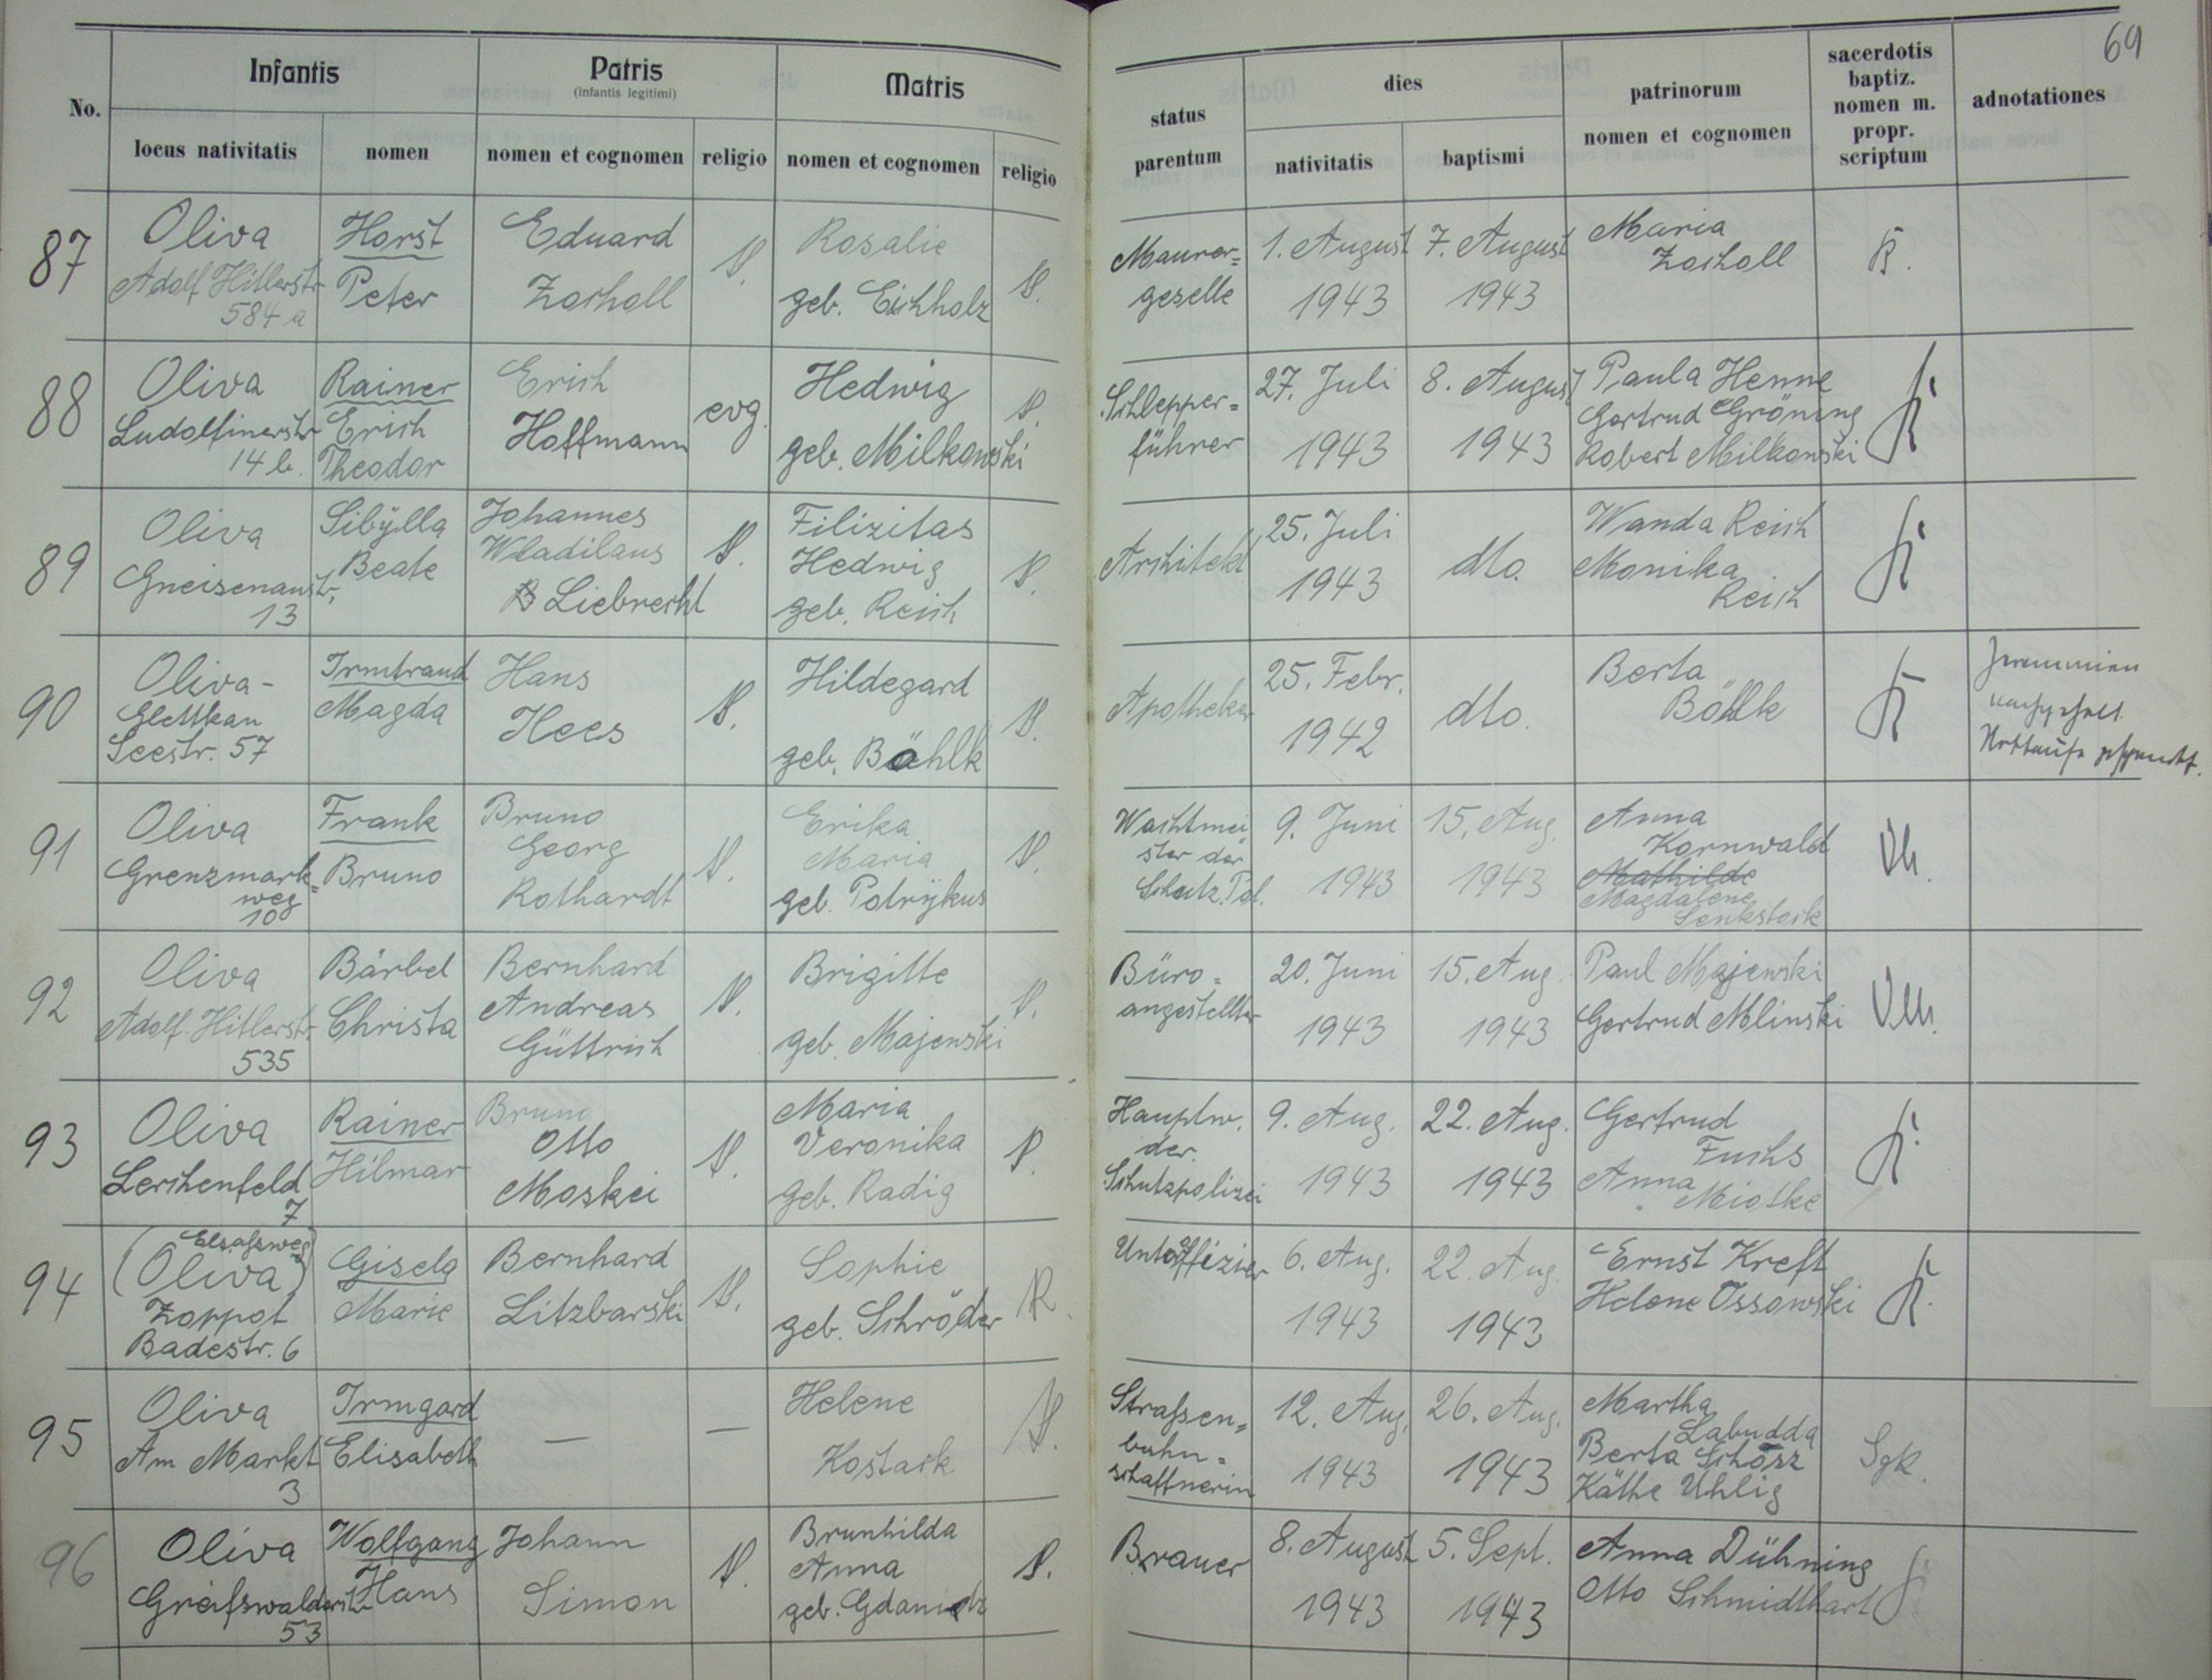 69
No.
Infantis
locus nativitatis
nomen
Patris
(infantis legitimi)
nomen et cognomen
religio
Matris
nomen et cognomen
religio
status
parentum
dies
nativitatis
baptismi
patrinorum
nomen et cognomen
sacerdotis
baptiz.
nomen m.
propr.
scriptum
adnotationes
87
Oliva
Adolf Hitlerstr
584 a
Horst
Peter
Eduard
Zoscholl
Rosalie
geb. Eichholz
Maurer=
geselle
1. August
1943
7. August
1943
Maria
Zoscholl
K.
88
Oliva
Ludolfinerstr
14 b.
Rainer
Erich
Theodor
Erich
Hoffmann
evg.
Hedwig
geb. Milkowski
Schlepper=
führer
27. Juli
1943
8. August
1943
Paula Henne
Gertrud Gröning
Robert Milkowski
K
89
Oliva
Gneisenaustr.
13
Sibÿlla
Beate
Johannes
Wladilaus
Liebrecht
Filizitas
Hedwig
geb. Reich
Architekt
25. Juli
1943
dto.
Wanda Reich
Monika
Reich
K
90
Oliva-
Glettkau
Seestr. 57
Irmtraud
Magda
Hans
Hees
Hildegard
geb. Bählk
Apotheker
25. Febr.
1942
dto.
Berta
Böhlk
K
Zeremonien
nachgeholt
Nottaufe gespendet.
91
Oliva
Grenzmark=
weg
10
Frank
Bruno
Bruno
Georg
Rothardt
Erika
Maria
geb. Potrÿkus
Wachtmei
ster der
Schutz.Pol.
9. Juni
1943
15. Aug.
1943
Anna
Kornwald
Mathilde
Magdalene
Senkstock
92
Oliva
Adolf Hitlerstr
535
Bärbel
Christa
Bernhard
Andreas
Güttrich
Brigitte
geb. Majewski
Büro=
angestellter
20. Juni
1943
15. Aug.
1943
Paul Majewski
Gertrud Mlinski
93
Oliva
Lerchenfeld
7
Rainer
Hilmar
Bruno
Otto
Moskei
Maria
Veronika
geb. Radig
Hauptw.
der
Schutzpolizei
9. Aug.
1943
22. Aug.
1943
Gertrud
Fuchs
Anna
Miotke
K.
94
Elsaßweg
(Oliva)
Zoppot
Badestr. 6
Gisela
Marie
Bernhard
Litzbarski
Sophie
geb. Schröder
R.
Unteroffizier
6. Aug.
1943
22. Aug.
1943
Ernst Kreft
Helene Ossowski
K.
95
Oliva
Am Markt
3
Irmgard
Elisabeth
—
—
Helene
Kostack
Straßen=
bahn=
schaffnerin
12. Aug.
1943
26. Aug.
1943
Martha
Labudda
Berta
Käthe Uhlig
Sgk.
96
Oliva
Greifswalderstr
53
Wolfgang
Hans
Johann
Simon
Brunhilda
Anna
geb. Gdanietz
Brauer
8. August
1943
5. Sept.
1943
Anna Dühning
Otto Schmidthart